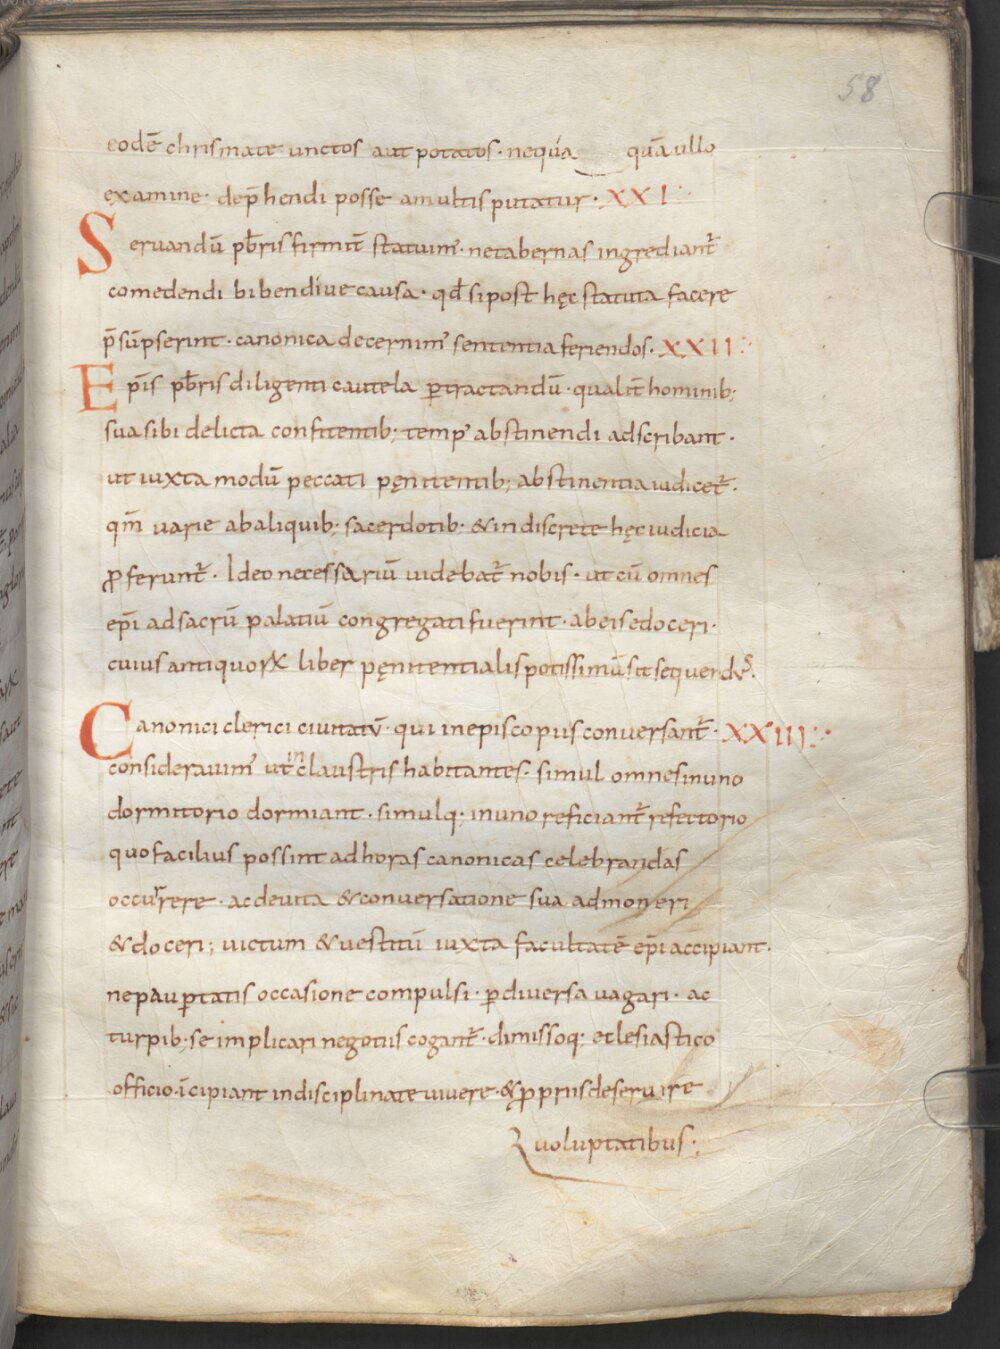 58
eodē chrismate unctos aut potatos · nequa quā ullo
examine · dep̄hendi posse amultis putatur · XXI
Seruandū pb̄ris firmit̄ statuim᾽ · netabernas ingrediant᷑
comedendi bibendiue causa · qd̄ sipost hęc statuta facere
p̄sūpserint · canonica decernim᾽ sententia feriendos · XXII
Ep̄is pb̄ris diligenti cautela ꝑtractandū · qualit̄ hominib;
sua sibi delicta confitentib; temp᾽ abstinendi adscribant ·
ut iuxta modū peccati pęnitentib; abstinentia iudicet᷑ ·
qm̄ uarie abaliquib; sacerdotib; & indiscrete hęc iudicia
ꝓferunt᷑ · Ideo necessariū uidebat᷑ nobis · ut cū omnes
ep̄i adsacrū palatiū congregati fuerint · abeis edoceri ·
cuius antiquoꝝ liber pęnitentialis potissimū sit sequendꝰs ·
Canonici clerici ciuitatū · qui inepiscopiis conuersant᷑ · XXIII
considerauim᾽ ut in claustris habitantes · simul omnes inuno
dormitorio dormiant · simulq; inuno reficiant᷑ refectorio
quo facilius possint adhoras canonicas celebrandas
occurrere · ac deuita & conuersatione sua admoneri
& doceri ; uictum & uestitū iuxta facultatē ep̄i accipiant ·
nepauꝑtatis occasione compulsi · ꝑ diuersa uagari · ac
turpib; se implicari negotiis cogant᷑ · dimissoq; ecclesiastico
officio · īcipiant indisciplinate uiuere · & ꝓpriis deseruire
uoluptatibus ;